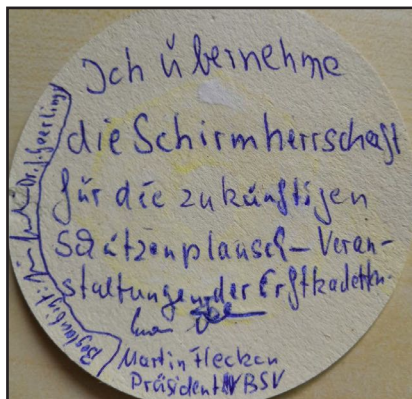 Ich übernehme
die Schirmherrschaft
für die zukünftigen
Schützenplausch-Veran-
staltungen der Erftkadetten.
Martin Flecken
Präsident NBSV
Beglaubigt: Dr. J. Geerlings